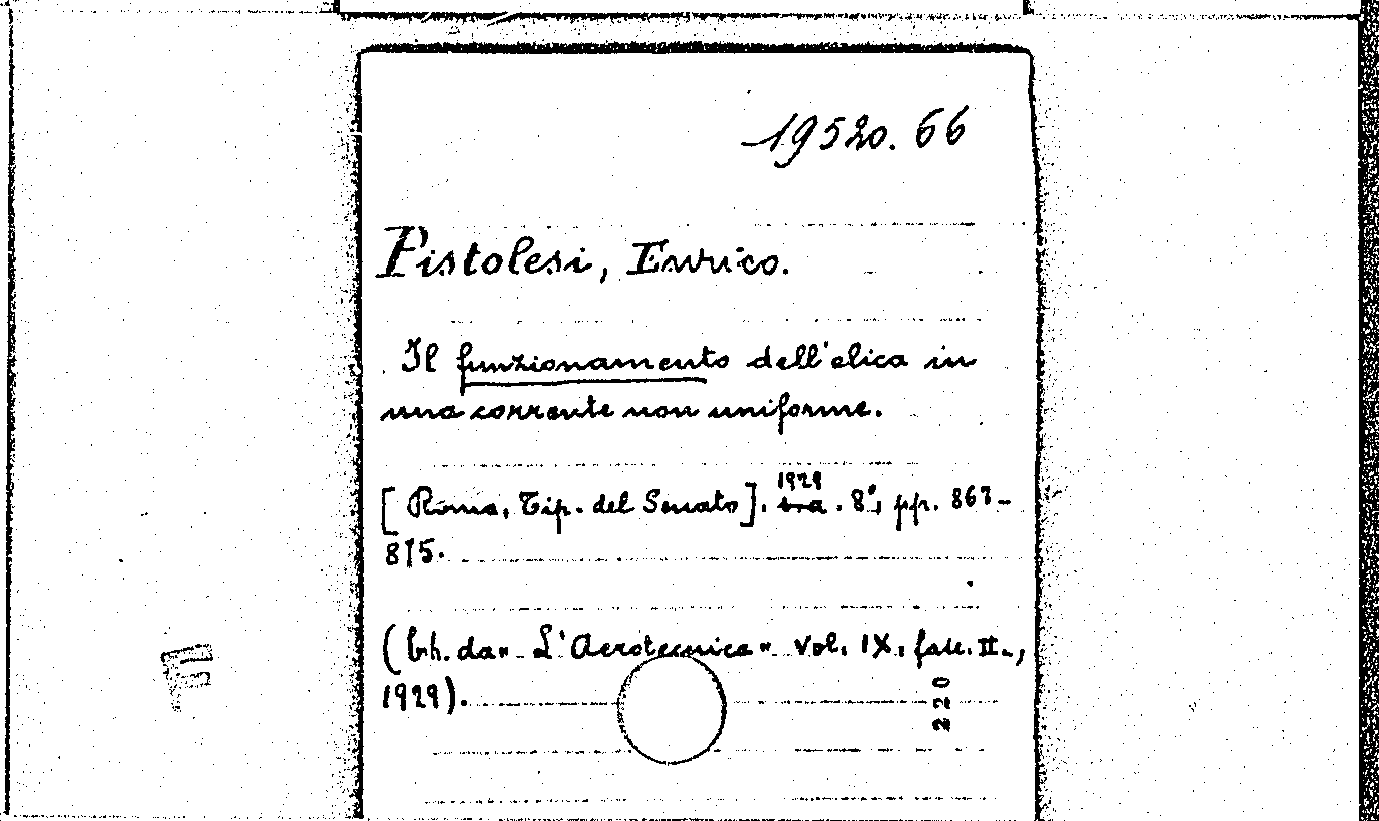 19520. 66
Pistolesi, Enrico.
Il funzionamento dell'elica in
una corrente non uniforme.
1929
[Roma, Tip. del Senato]. s.a. 8°, pp. 867-
875.
(Estr. da "L'Aerotecnica" vol. IX, fasc. II-,
1929).
220